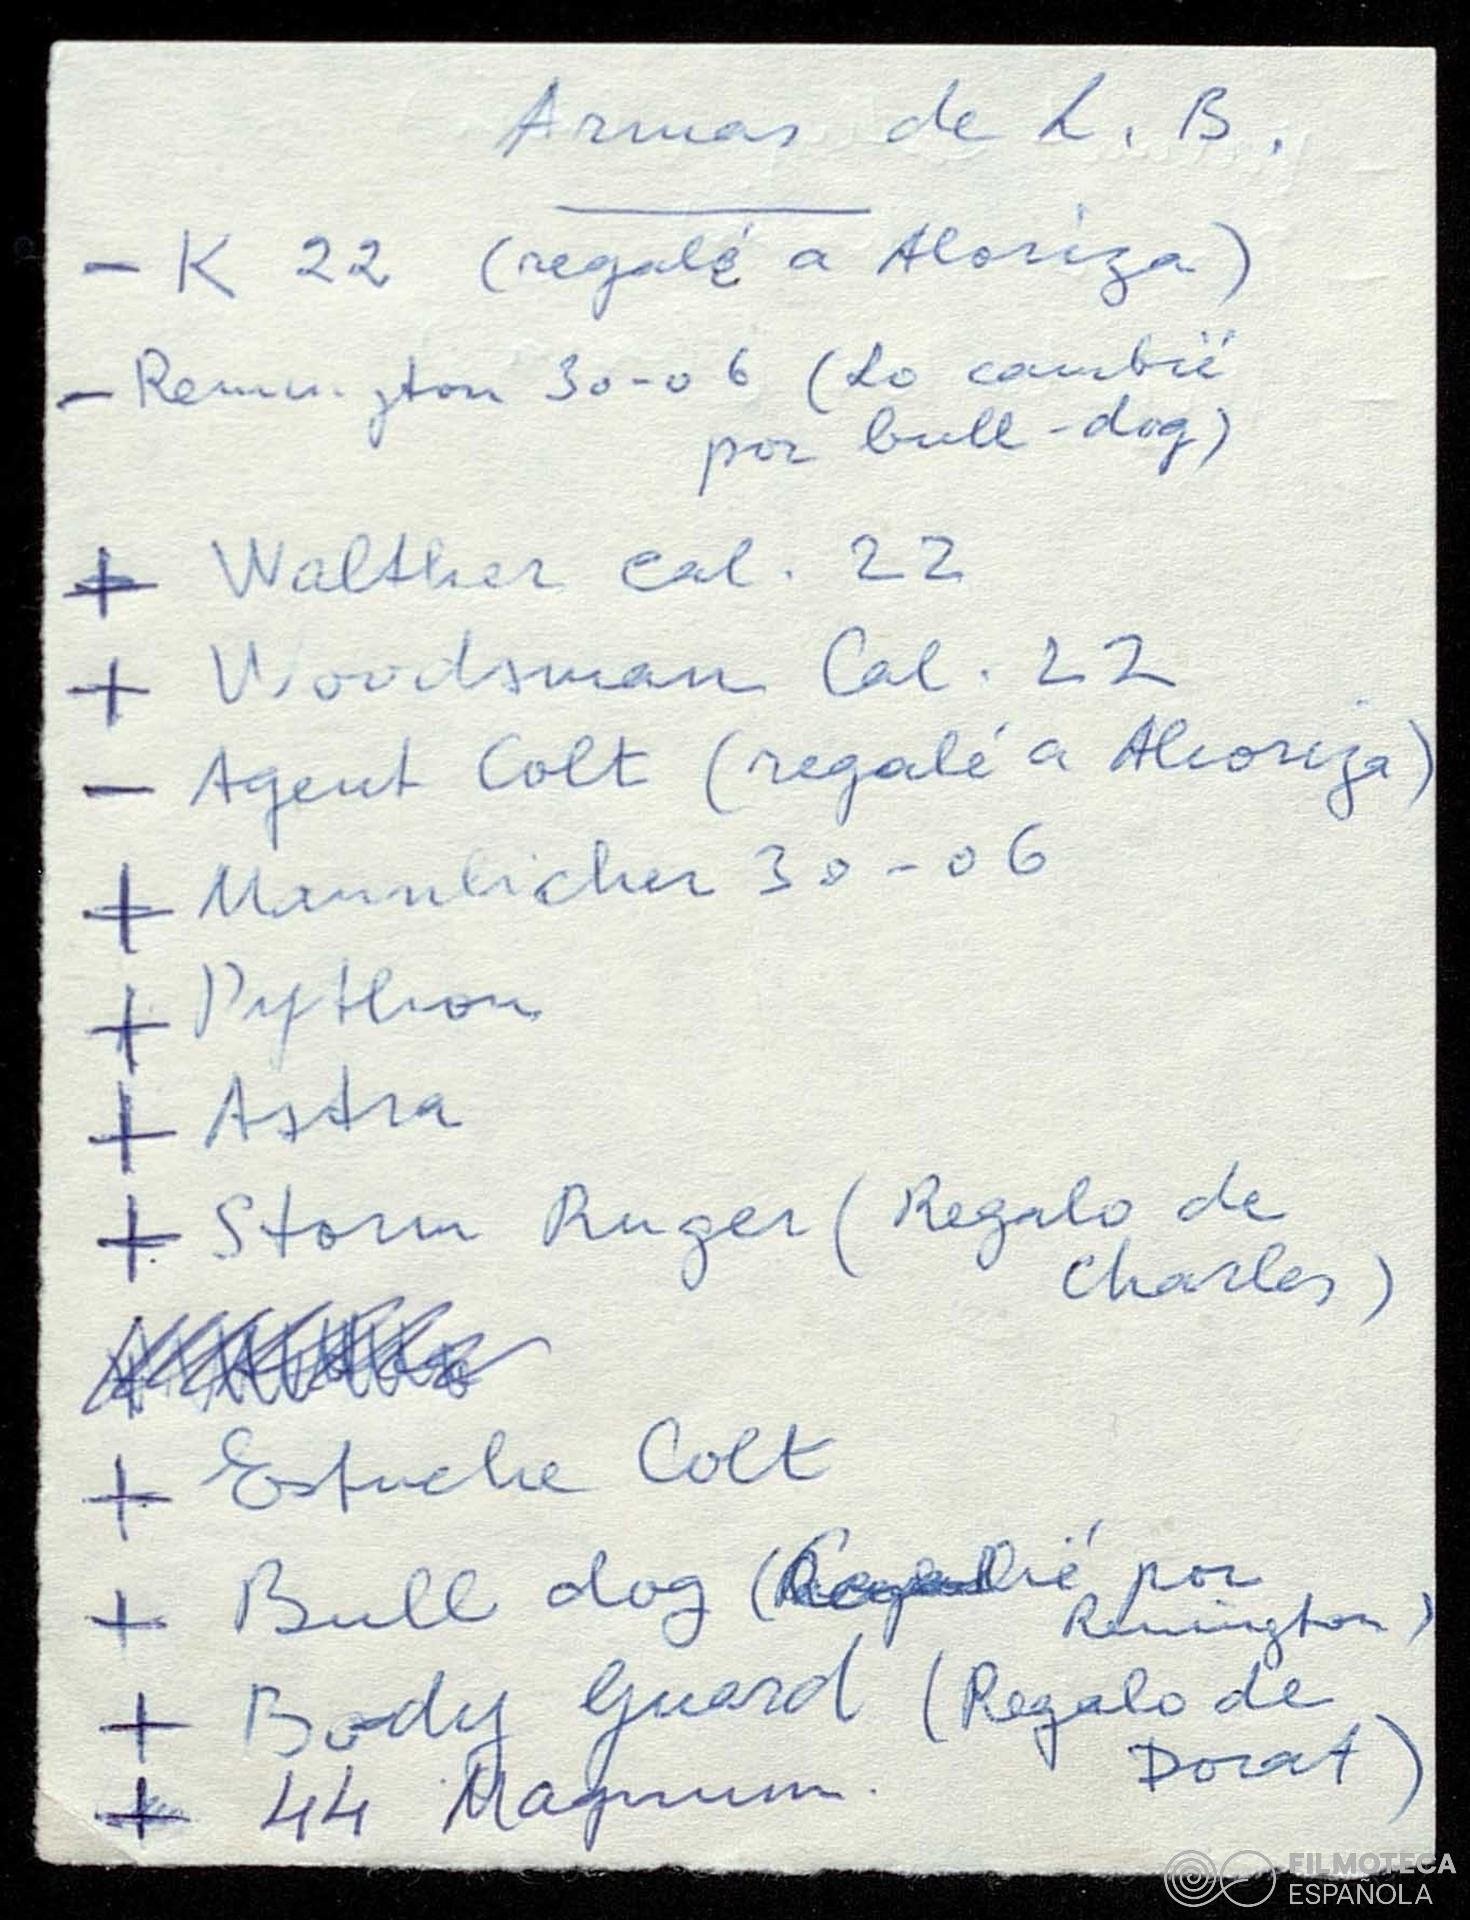 Armas de L. B.
- K 22 (regalé a Alcoriza)
- Remington 30-06 (Lo cambié
por bull-dog)
+ Walther cal. 22
+ Woodsman Cal. 22
- Agent Colt (regalé a Alcoriza)
+ Mannlicher 30-06
+ Python
+ Astra
+ Storm Ruger (Regalo de
Charles)
+ Estuche Colt
+ Bull dog ( por
Remington)
+ Body Guard (Regalo de
Dorat)
+ 44 Magnum.
FILMOTECA
ESPAÑOLA